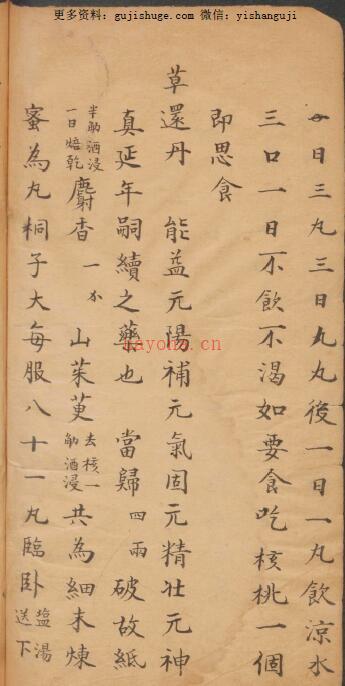 更多资料：gujishuge.com 微信：yishanguji
日三丸三日丸丸後一日一丸飲涼水
三口一日不飲不渴如要食吃核桃一個
即思食
草還丹 能益元陽補元氣固元精壯元神
真延年嗣續之藥也 當歸 四兩 破故紙
半觔酒浸一日焙乾 麝香 一 山茱萸 去核一觔酒浸 共為細末煉
蜜為丸桐子大每服八十一丸臨卧 塩湯送下
nayona.cn